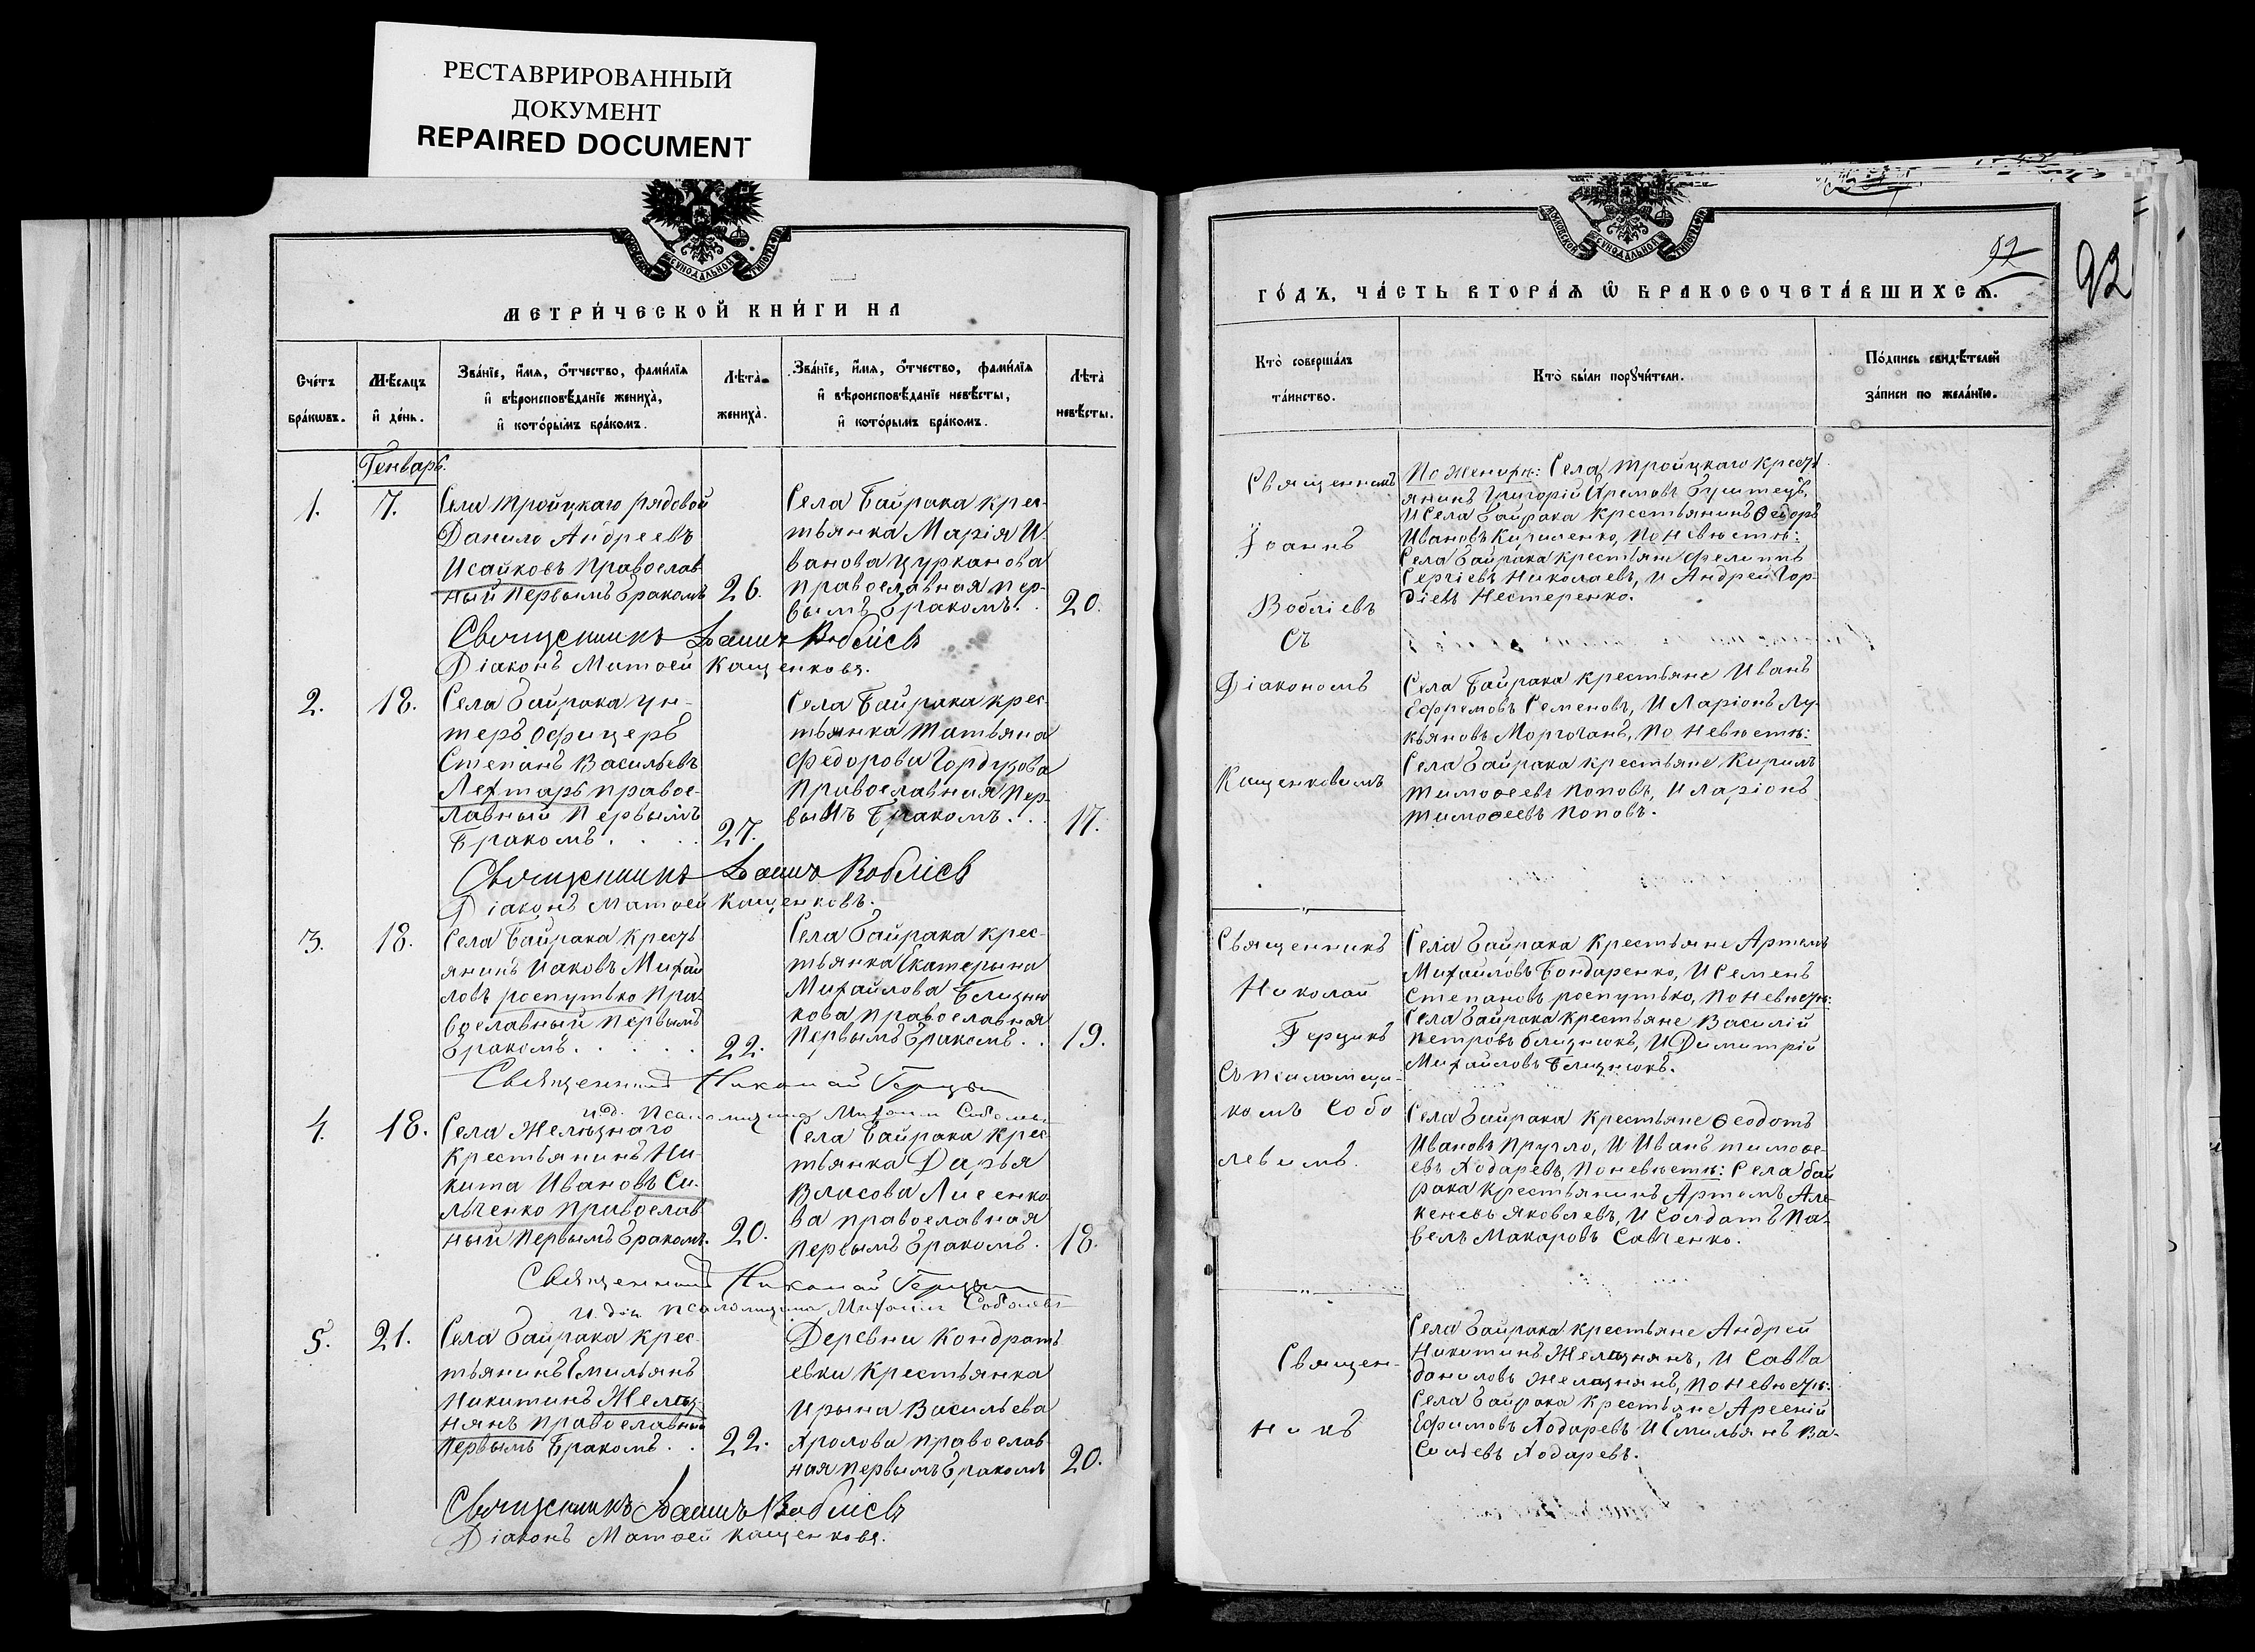 РЕСТАВРИРОВАННЫЙ
ДОКУМЕНТ
REPAIRED DOCUMENT
МОСКОВСКОЙ СУНОДАЛЬНОЙ ТИПОГРАФІИ
МЕТРИ́ЧЕСКОЙ КНИ́ГИ НА
Сче́тъ бра́кѡвъ.
Мѣ́сяцъ и҆ де́нь.
Зва́нїе, и҆́мя, ѻ҆́тчество, фами́лїя
и҆ вѣроисповѣ́данїе жениха̀,
и҆ кото́рымъ бра́комъ.
Лѣ́та̀ жениха̀.
Зва́нїе, и҆́мя, ѻ҆́тчество, фами́лїя
и҆ вѣроисповѣ́данїе невѣ́сты,
и҆ кото́рымъ бра́комъ.
Лѣ́та̀ невѣ́сты.
Генварь.
1.
7.
Села Тройцкаго рядовой
Данило Андреевъ
Исайковъ православ
ный первымъ бракомъ
26.
Села Байрака крес-
тьянка Марія И
ванова Цурканова
православная пер-
вымъ бракомъ.
20.
Священникъ Іоаннъ Воблієвъ
Діаконъ Матѳей Кащенковъ.
2.
18.
Села Байрака Ун-
теръ Офицеръ
Степанъ Васильевъ
Лехтарь правос-
лавный первымъ
бракомъ.
27.
Села Байрака крес-
тьянка Татьяна
Федорова Гордузова
православная пер-
вымъ бракомъ.
17.
Священникъ Іоаннъ Воблієвъ
Діаконъ Матѳей Кащенковъ.
3.
18.
Села Байрака кресть
янинъ Иаковъ Михай
ловъ Роспутько пра-
вославный первымъ
бракомъ.
22.
Села Байрака крес-
тьянка Екатерына
Михайлова Близню
кова православная
первымъ бракомъ.
19.
Священникъ Николай Герцикъ
и.д. псаломщика Михаилъ Соболевъ
4.
18.
Села Желѣзнаго
крестьянинъ Ни-
кита Ивановъ Си-
льченко православ
ный первымъ бракомъ.
20.
Села Байрака крес-
тьянка Дарья
Власова Лисенко
ва православная
первымъ бракомъ.
18.
Священникъ Николай Герцикъ
и.д. псаломщика Михаилъ Соболевъ
5.
21.
Села Байрака крес-
тьянинъ Емильянъ
Никитинъ Желез-
нянъ православный
первымъ бракомъ.
22.
Деревни Кондрать
евки крестьянка
Ирына Васильева
Хролова православ
ная первымъ бракомъ
20.
Священникъ Іоаннъ Воблієвъ
Діаконъ Матѳей Кащенковъ.
МОСКОВСКОЙ СУНОДАЛЬНОЙ ТИПОГРАФІИ
92
92
ГО́ДЪ, ЧА́СТЬ ВТОРА́Ѧ Ѽ БРАКОСОЧЕТА́ВШИХСѦ.
Кто̀ соверша́лъ
та́инство.
Кто̀ бы́ли порꙋчи́тели.
По́дпись свидѣ́телей
за́писи по жела́нїю.
Священникъ
Іоаннъ
Воблієвъ
Съ
Діакономъ
Кащенковымъ
По женихѣ: Села Тройцкаго кресть
янинъ Григорій Ахремовъ Буштецъ,
И Села Байрака крестьянинъ Ѳедоръ
Ивановъ Кириленко, по невѣстѣ:
Села Байрака крестьяне Филиппъ
Сергіевъ Николаевъ, и Андрей Гор-
діевъ Нестеренко.
Села Байрака крестьяне Иванъ
Ефремовъ Семеновъ, Иларіонъ Лу-
кьяновъ Моргочанъ, по невѣстѣ:
Села Байрака крестьяне Кирилъ
Тимоѳеевъ Поповъ, Иларіонъ
Тимоѳеевъ Поповъ.
Священникъ
Николай
Герцикъ
Съ псаломщи-
комъ Собо
левымъ.
Села Байрака крестьяне Артемъ
Михайловъ Бондаренко, И Семенъ
Степановъ Роспутько, по невѣстѣ:
Села Байрака крестьяне Василій
Петровъ Близнюкъ, И Димитрій
Михайловъ Близнюкъ.
Села Байрака крестьяне Ѳеодотъ
Ивановъ Пругло, И Иванъ Тимоѳе-
евъ Ходаревъ, по невѣстѣ: Села Бай
рака крестьянинъ Артемъ Але-
ксеевъ Яковлевъ, И Солдатъ Па-
велъ Макаровъ Савченко.
Священ-
никъ
Села Байрака крестьяне Андрей
Никитинъ Железнянъ, И Савва
Даниловъ Железнянъ, по невѣстѣ:
Села Байрака крестьяне Арсеній
Ефимовъ Ходаревъ И Емильянъ Ва-
сильевъ Ходаревъ.